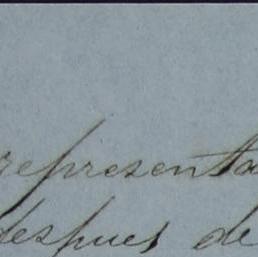 representa
despues de